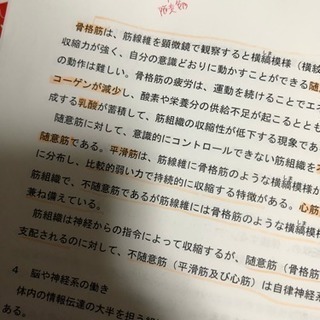 骨格筋は、筋線維を顕微鏡で観察すると横縞模様（横紋
収縮力が強く、自分の意識どおりに動かすことができる随
の動作は難しい。骨格筋の疲労は、運動を続けることでエネ
コーゲンが減少し、酸素や栄養分の供給不足が起こるととも
成する乳酸が蓄積して、筋組織の収縮性が低下する現象であ
随意筋に対して、意識的にコントロールできない筋組織を
随意筋である。平滑筋は、筋線維に骨格筋のような横縞模様
に分布し、比較的弱い力で持続的に収縮する特徴がある。心筋
筋組織で、不随意筋であるが筋線維には骨格筋のような横縞模
兼ね備えている。
筋組織は神経からの指令によって収縮するが、随意筋（骨格筋
支配されるのに対して、不随意筋（平滑筋及び心筋）は自律神経系
4 脳や神経系の働き
体内の情報伝達の大半を担う組
ある。